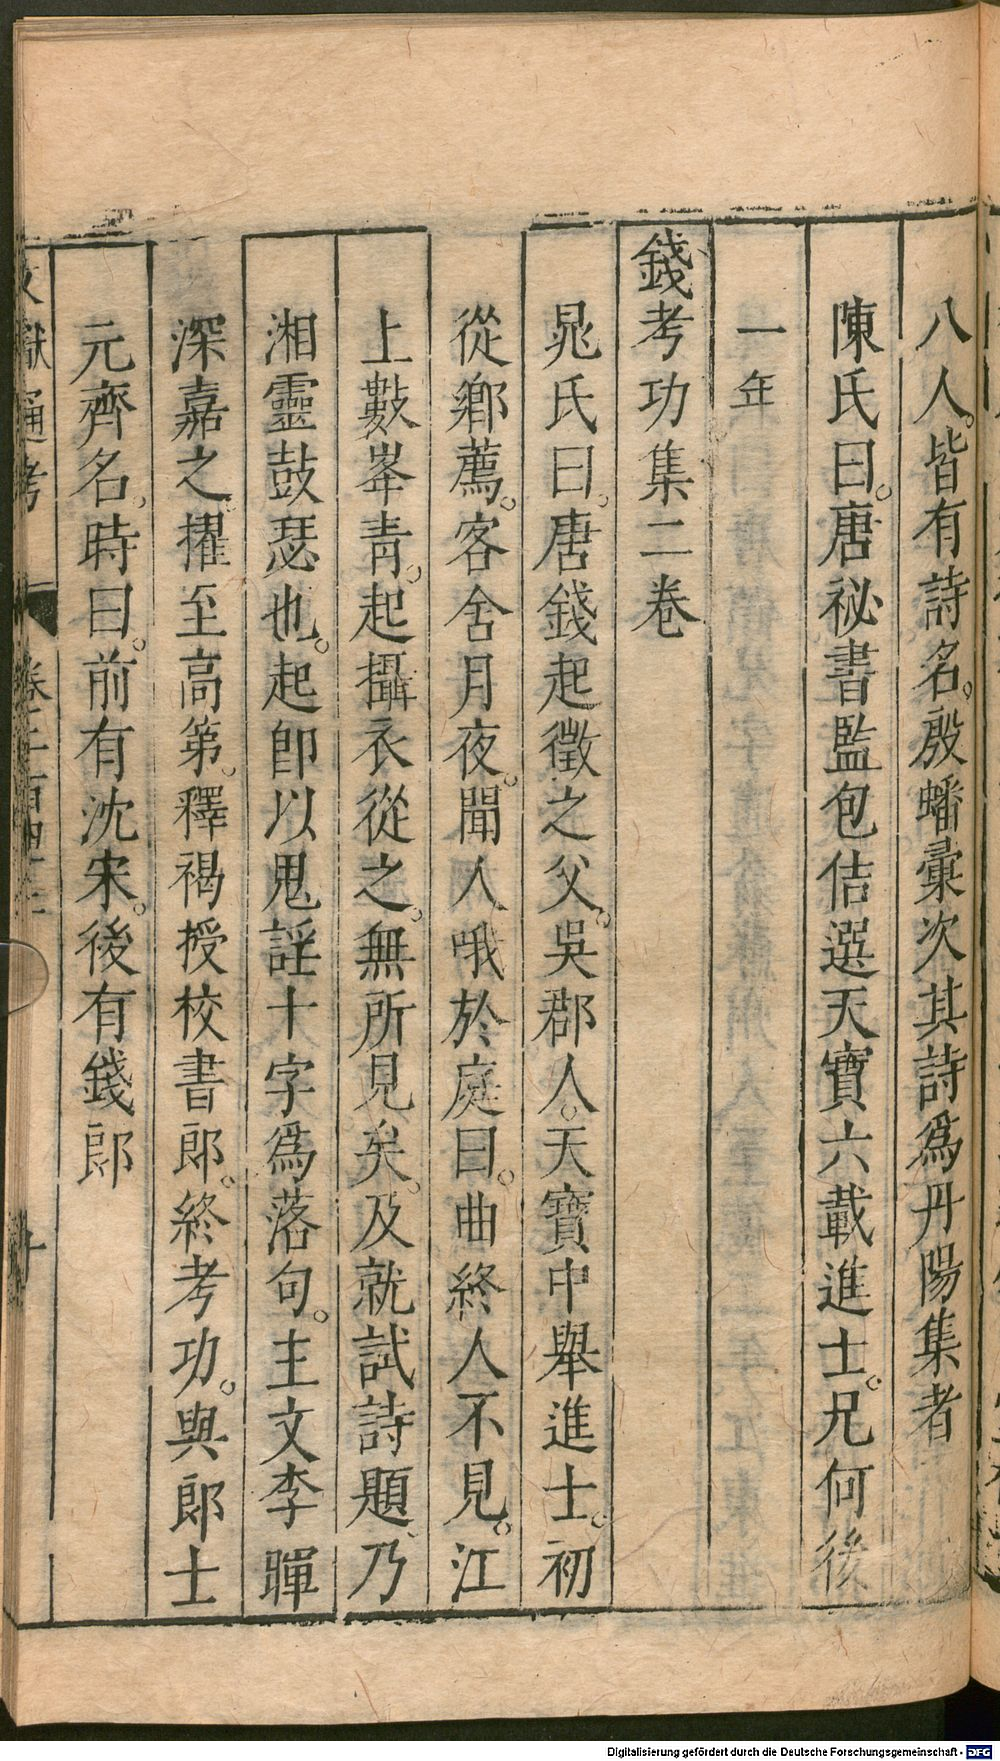 八人。皆有詩名。殷蟠彙次其詩爲丹陽集者
陳氏曰。唐祕書監包佶選天寶六載進士。兄何後
一年
錢考功集二卷
晁氏曰。唐錢起徵之父。吳郡人。天寶中舉進士。初
從鄉薦。客舍月夜。聞人哦於庭曰。曲終人不見。江
上數峯青。起攝衣從之。無所見矣。及就試詩題、乃
湘靈鼓瑟也。起卽以鬼謡十字爲落句。主文李暉
深嘉之。擢至高第。釋褐授校書郎。終考功。與郎士
元齊名。時曰。前有沈宋。後有錢郎
文獻通考 卷二百四十二 十
Digitalisierung gefördert durch die Deutsche Forschungsgemeinschaft - DFG